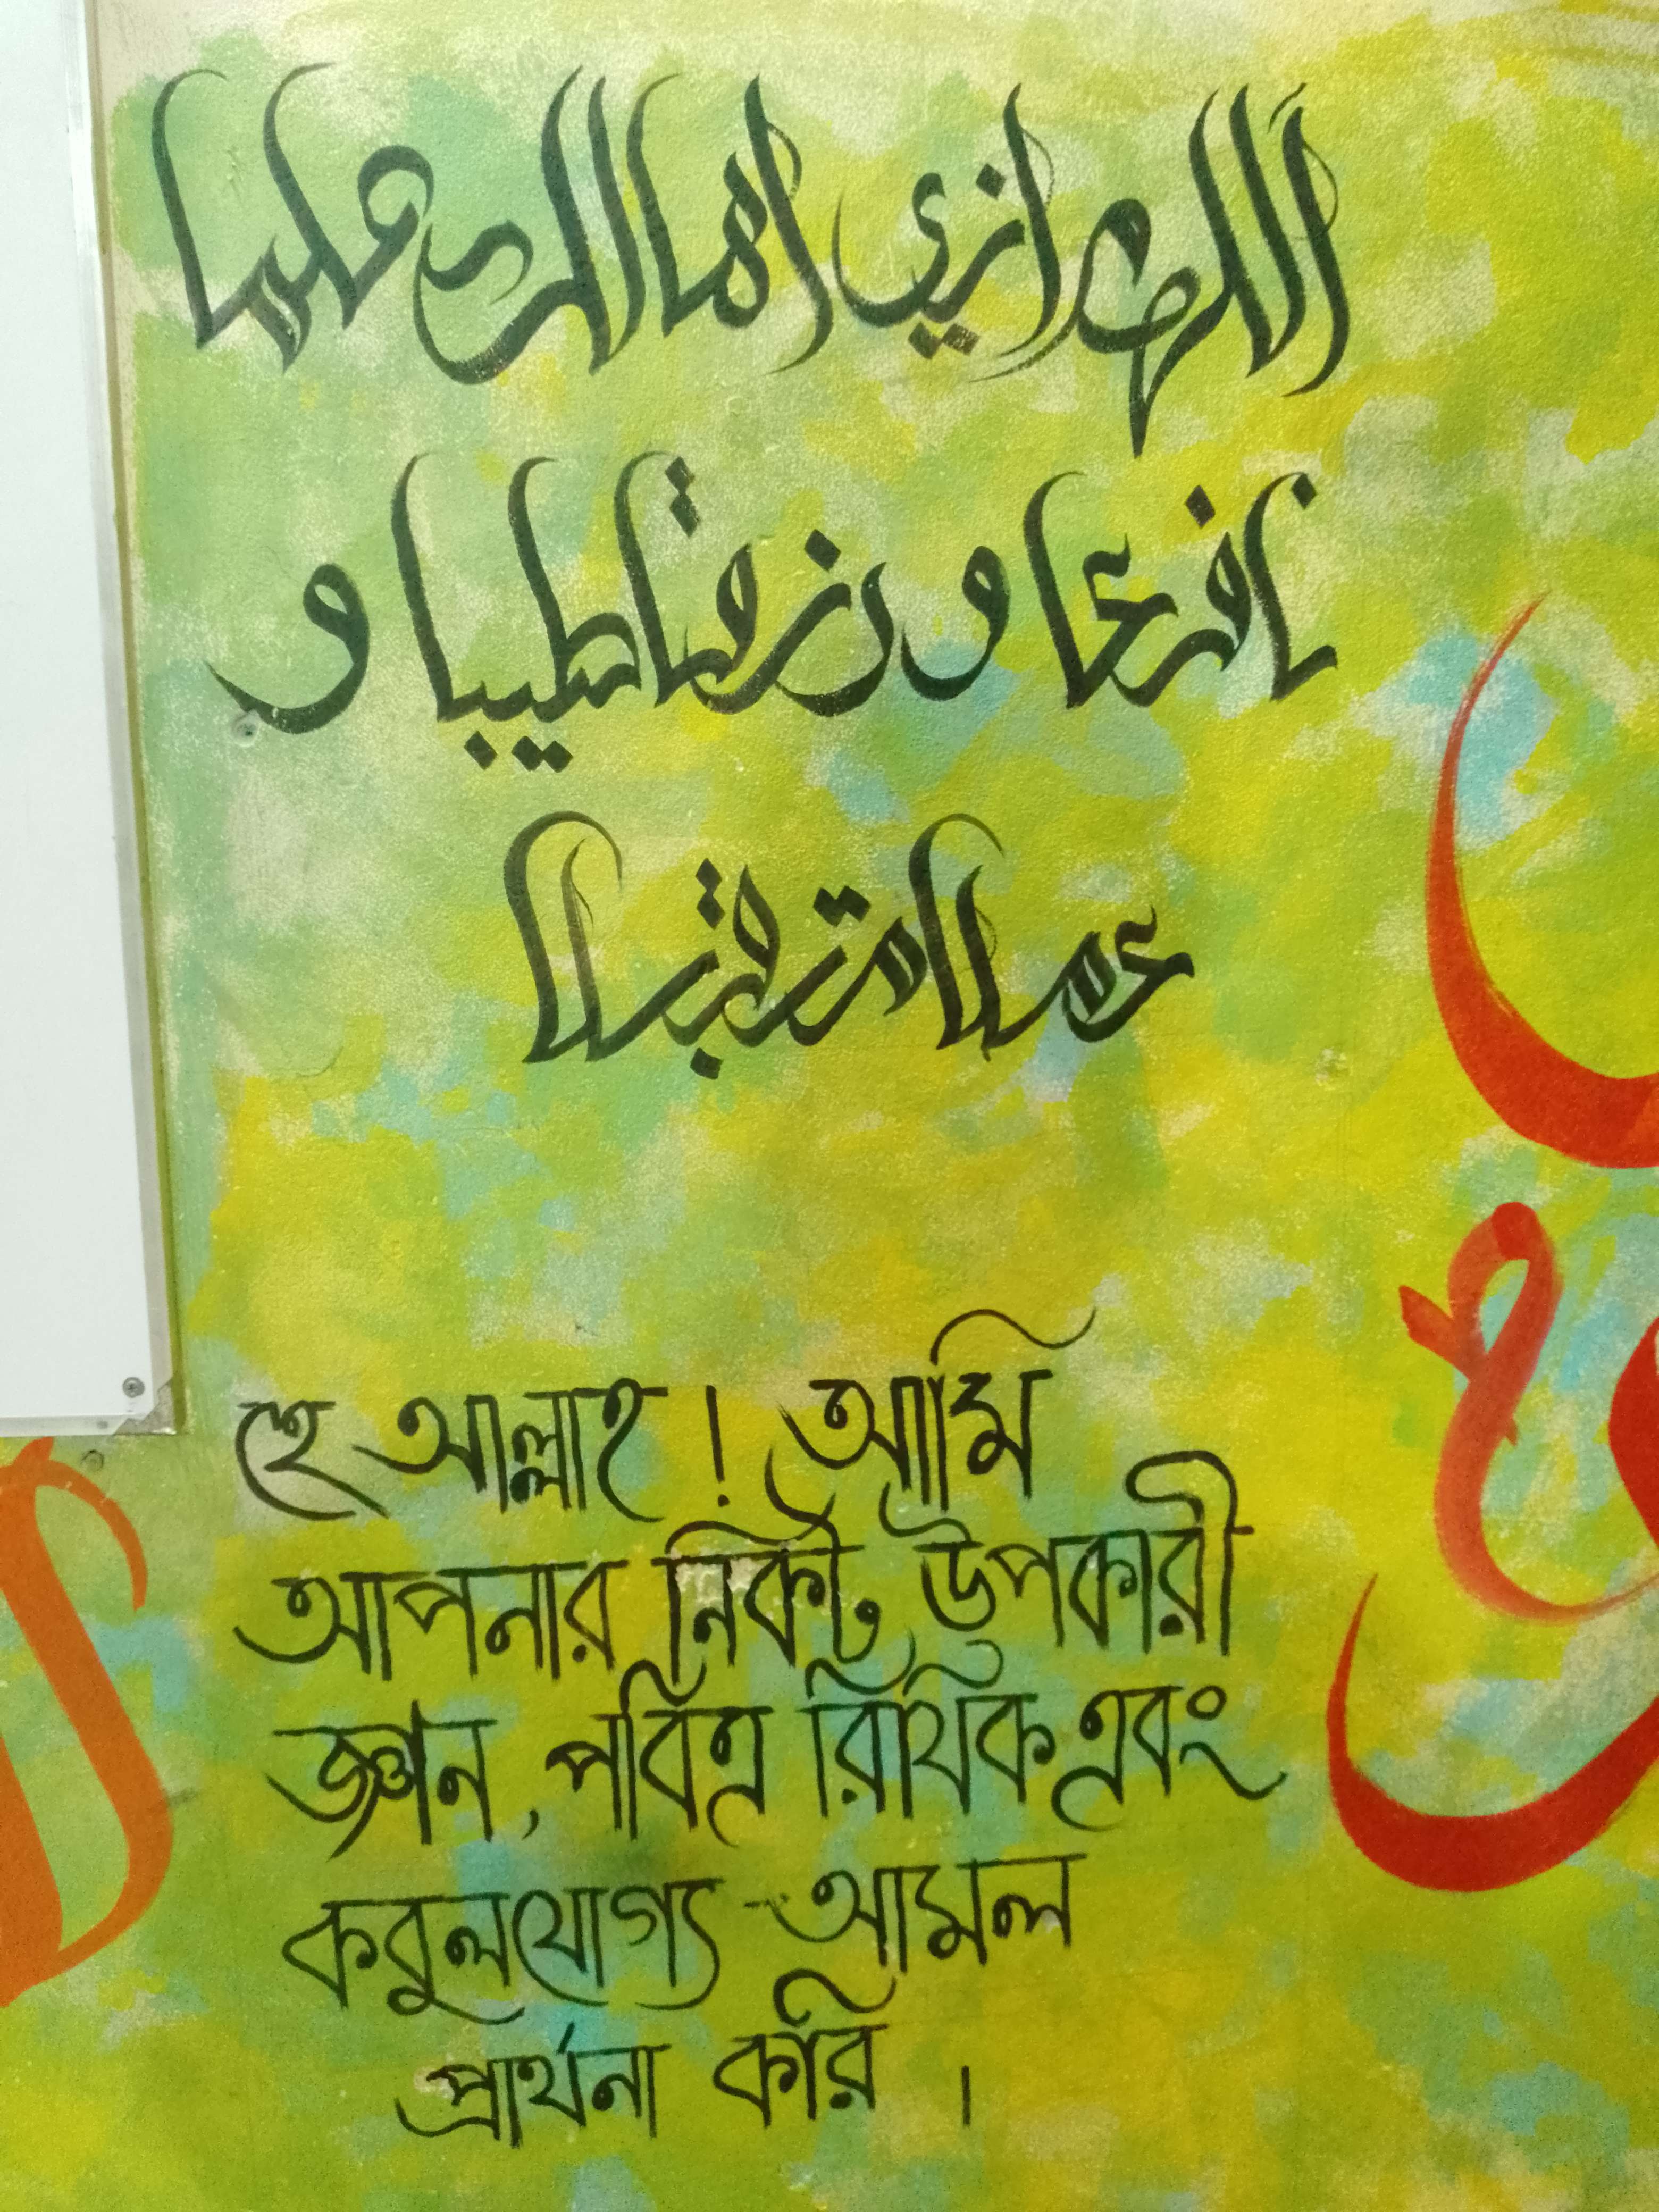 اللهم اني اسالك علما
نافعا و رزقا طيبا و
عملا متقبلا
হে আল্লাহ ! আমি
আপনার নিকট উপকারী
জ্ঞান, পবিত্র রিযিক এবং
কবুলযোগ্য আমল
প্রার্থনা করি ।